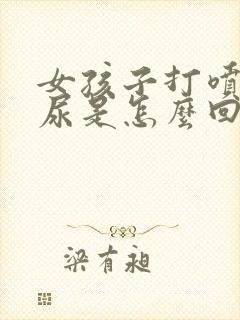 女孩子打噴
尿是怎麼回
梁有昶